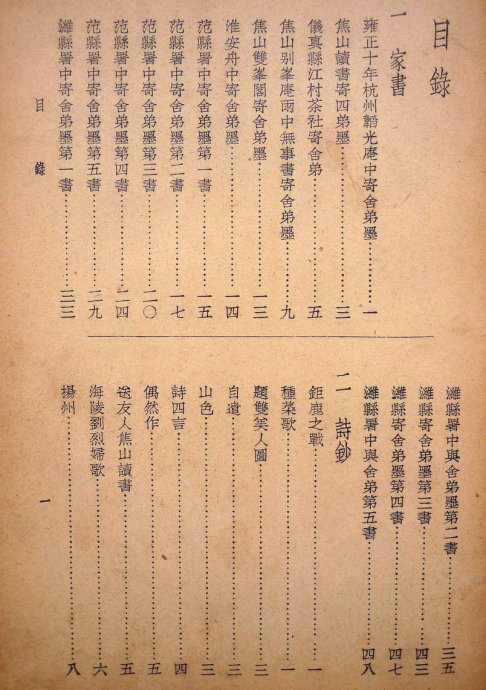 目錄
一 家書
雍正十年杭州韜光庵中寄舍弟墨……一
焦山讀書寄四弟墨……三
儀真縣江村茶社寄舍弟……五
焦山別峯庵雨中無事書寄舍弟墨……九
焦山雙峯閣寄舍弟墨……一三
淮安舟中寄舍弟墨……一四
范縣署中寄舍弟墨第一書……一五
范縣署中寄舍弟墨第二書……一七
范縣署中寄舍弟墨第三書……二〇
范縣署中寄舍弟墨第四書……二四
范縣署中寄舍弟墨第五書……二九
濰縣署中寄舍弟墨第一書……三三
濰縣署中與舍弟墨第二書……三五
濰縣寄舍弟墨第三書……四三
濰縣寄舍弟墨第四書……四七
濰縣署中與舍弟第五書……四八
二 詩鈔
鉅鹿之戰……一
種菜歌……一
題雙美人圖……三
自遣……三
山色……三
詩四言……四
偶然作……五
送友人焦山讀書……五
海陵劉烈婦歌……六
揚州……八
目錄
一